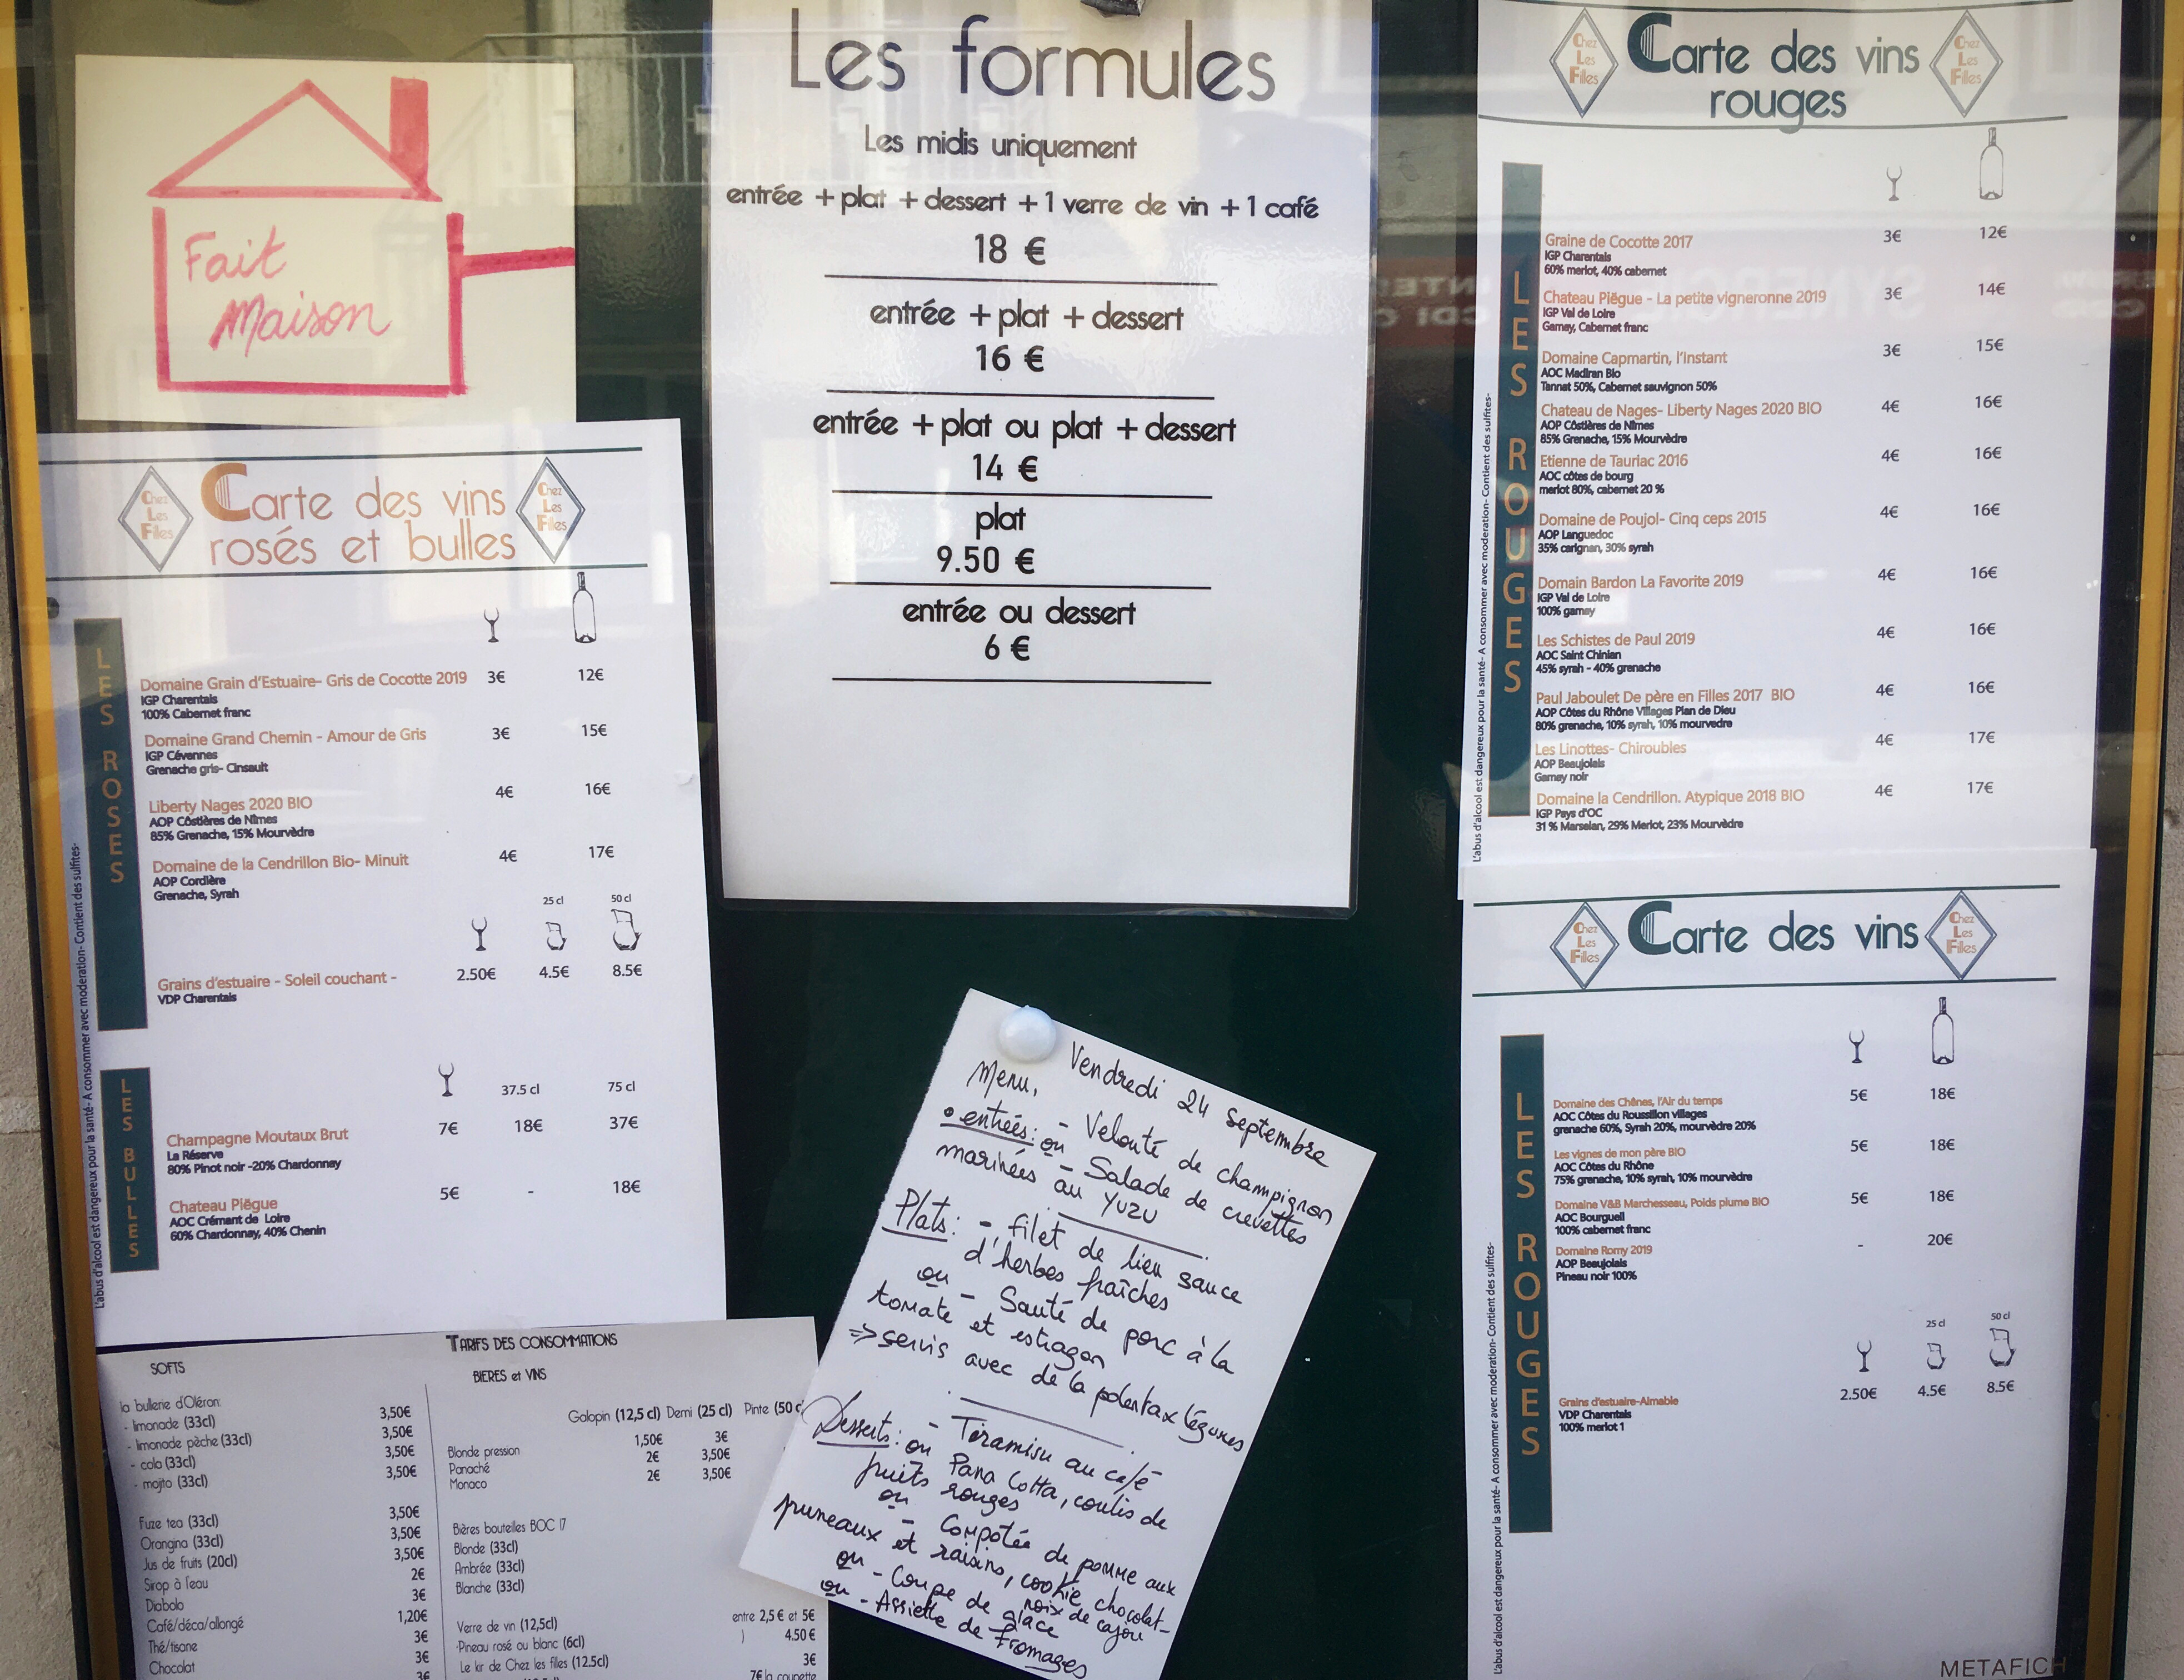 Fait
Maison
Les formules
Les midis uniquement
entrée + plat + dessert + 1 verre de vin + 1 café
18 €
entrée + plat + dessert
16 €
entrée + plat ou plat + dessert
14 €
plat
9.50 €
entrée ou dessert
6 €
Chez
Les
Filles
Carte des vins
rosés et bulles
Chez
Les
Filles
LES ROSES
Domaine Grain d'Estuaire- Gris de Cocotte 2019 3€ 12€
IGP Charentais
100% Cabernet franc
Domaine Grand Chemin - Amour de Gris 3€ 15€
IGP Cévennes
Grenache gris- Cinsault
Liberty Nages 2020 BIO 4€ 16€
AOP Côstières de Nîmes
85% Grenache, 15% Mourvèdre
Domaine de la Cendrillon Bio- Minuit 4€ 17€
AOP Cordière
Grenache, Syrah
25 cl 50 cl
Grains d'estuaire - Soleil couchant - 2.50€ 4.5€ 8.5€
VDP Charentais
LES BULLES
37.5 cl 75 cl
Champagne Moutaux Brut 7€ 18€ 37€
La Réserve
80% Pinot noir -20% Chardonnay
Chateau Piëgue 5€ - 18€
AOC Crémant de Loire
60% Chardonnay, 40% Chenin
L'abus d'alcool est dangereux pour la santé- A consommer avec moderation- Contient des sulfites-
TARIFS DES CONSOMMATIONS
SOFTS
la bullerie d'Oléron:
- limonade (33cl) 3,50€
- limonade pèche (33cl) 3,50€
- cola (33cl) 3,50€
- mojito (33cl) 3,50€
Fuze tea (33cl) 3,50€
Orangina (33cl) 3,50€
Jus de fruits (20cl) 3,50€
Sirop à l'eau 2€
Diabolo 3€
Café/déca/allongé 1,20€
Thé/tisane 3€
Chocolat 3€
3€
BIERES et VINS
Galopin (12,5 cl) Demi (25 cl) Pinte (50 c
Blonde pression 1,50€ 3€
Panaché 2€ 3,50€
Monaco 2€ 3,50€
Bières bouteilles BOC 17
Blonde (33cl)
Ambrée (33cl)
Blanche (33cl)
Verre de vin (12,5cl) entre 2,5 € et 5€
Pineau rosé ou blanc (6cl) ) 4.50 €
Le kir de Chez les filles (12.5cl) 3€
7€ la coupette
Vendredi 24 Septembre
Menu,
• entrées: - Velouté de champignon
ou - Salade de crevettes
marinées au yuzu
Plats: - filet de lieu sauce
d'herbes fraîches
ou - Sauté de porc à la
tomate et estragon
=> servis avec de la polenta x légumes
Desserts: - Tiramisu au café
ou Pana Cotta, coulis de
fruits rouges
ou - Compotée de pomme aux
pruneaux et raisins, cookie chocolat-
noix de cajou
ou - Coupe de glace
ou - Assiette de fromages
Chez
Les
Filles
Carte des vins
rouges
Chez
Les
Filles
LES ROUGES
Graine de Cocotte 2017 3€ 12€
IGP Charentais
60% merlot, 40% cabernet
Chateau Piëgue - La petite vigneronne 2019 3€ 14€
IGP Val de Loire
Gamay, Cabernet franc
Domaine Capmartin, l'Instant 3€ 15€
AOC Madiran Bio
Tannat 50%, Cabernet sauvignon 50%
Chateau de Nages- Liberty Nages 2020 BIO 4€ 16€
AOP Côstières de Nîmes
85% Grenache, 15% Mourvèdre
Etienne de Tauriac 2016 4€ 16€
AOC côtes de bourg
merlot 80%, cabernet 20 %
Domaine de Poujol- Cinq ceps 2015 4€ 16€
AOP Languedoc
35% carignan, 30% syrah
Domain Bardon La Favorite 2019 4€ 16€
IGP Val de Loire
100% gamay
Les Schistes de Paul 2019 4€ 16€
AOC Saint Chinian
45% syrah - 40% grenache
Paul Jaboulet De père en Filles 2017 BIO 4€ 16€
AOP Côtes du Rhône Villages Plan de Dieu
80% grenache, 10% syrah, 10% mourvedre
Les Linottes- Chiroubles 4€ 17€
AOP Beaujolais
Gamay noir
Domaine la Cendrillon. Atypique 2018 BIO 4€ 17€
IGP Pays d'OC
31 % Marselan, 29% Merlot, 23% Mourvèdre
L'abus d'alcool est dangereux pour la santé- A consommer avec moderation- Contient des sulfites-
Chez
Les
Filles
Carte des vins
Chez
Les
Filles
LES ROUGES
Domaine des Chênes, l'Air du temps 5€ 18€
AOC Côtes du Roussillon villages
grenache 60%, Syrah 20%, mourvèdre 20%
Les vignes de mon père BIO 5€ 18€
AOC Côtes du Rhône
75% grenache, 10% syrah, 10% mourvèdre
Domaine V&B Marchesseau, Poids plume BIO 5€ 18€
AOC Bourgueil
100% cabernet franc
Domaine Romy 2019 - 20€
AOP Beaujolais
Pineau noir 100%
25 cl 50 cl
Grains d'estuaire-Aimable 2.50€ 4.5€ 8.5€
VDP Charentais
100% merlot 1
L'abus d'alcool est dangereux pour la santé- A consommer avec moderation- Contient des sulfites-
METAFICH